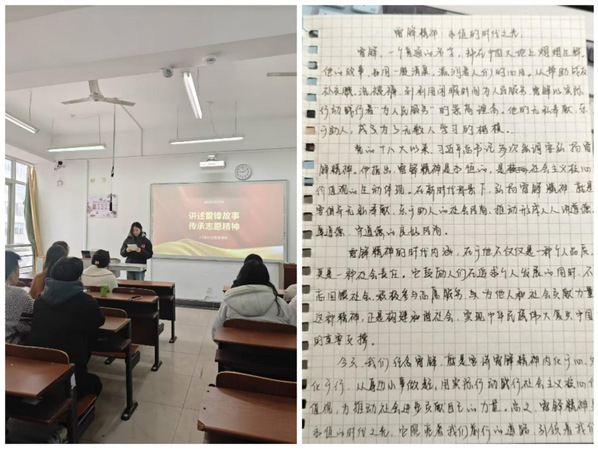 讲述雷锋故事
传承志愿精神
雷锋精神 永恒的时代之光
雷锋，一个普通的名字，却在中国大地上熠熠生辉，
他的故事，如同一股清泉，滋润着人们的心田。从帮助战友
补衣服、洗被褥，到利用闲暇时间为人民服务，雷锋以实际
行动践行着“为人民服务”的崇高理念。他的无私奉献、乐
于助人，成为了无数人学习的楷模。
党的十八大以来，习近平总书记多次强调要弘扬
雷锋精神。他指出，雷锋精神是永恒的，是社会主义核心
价值观的生动体现。在新时代背景下，弘扬雷锋精神，就是
要倡导无私奉献、乐于助人的社会风尚，推动形成人人
的良好风尚。
雷锋精神的时代内涵，在于他不仅仅是一种个人品质，
更是一种社会责任。它鼓励人们在追求个人发展的同时，不
忘回馈社会，积极参与志愿服务，为他人和社会贡献力量
这种精神，正是构建和谐社会、实现中华民族伟大复兴中国
的重要支撑。
今天，我们纪念雷锋，就是要将雷锋精神内化于心、
化于行。从身边小事做起，用实际行动践行社会主义核心
值观，为推动社会进步贡献自己的力量。总之，雷锋精神是
永恒的时代之光，它照亮着我们前行的道路，引领着我们